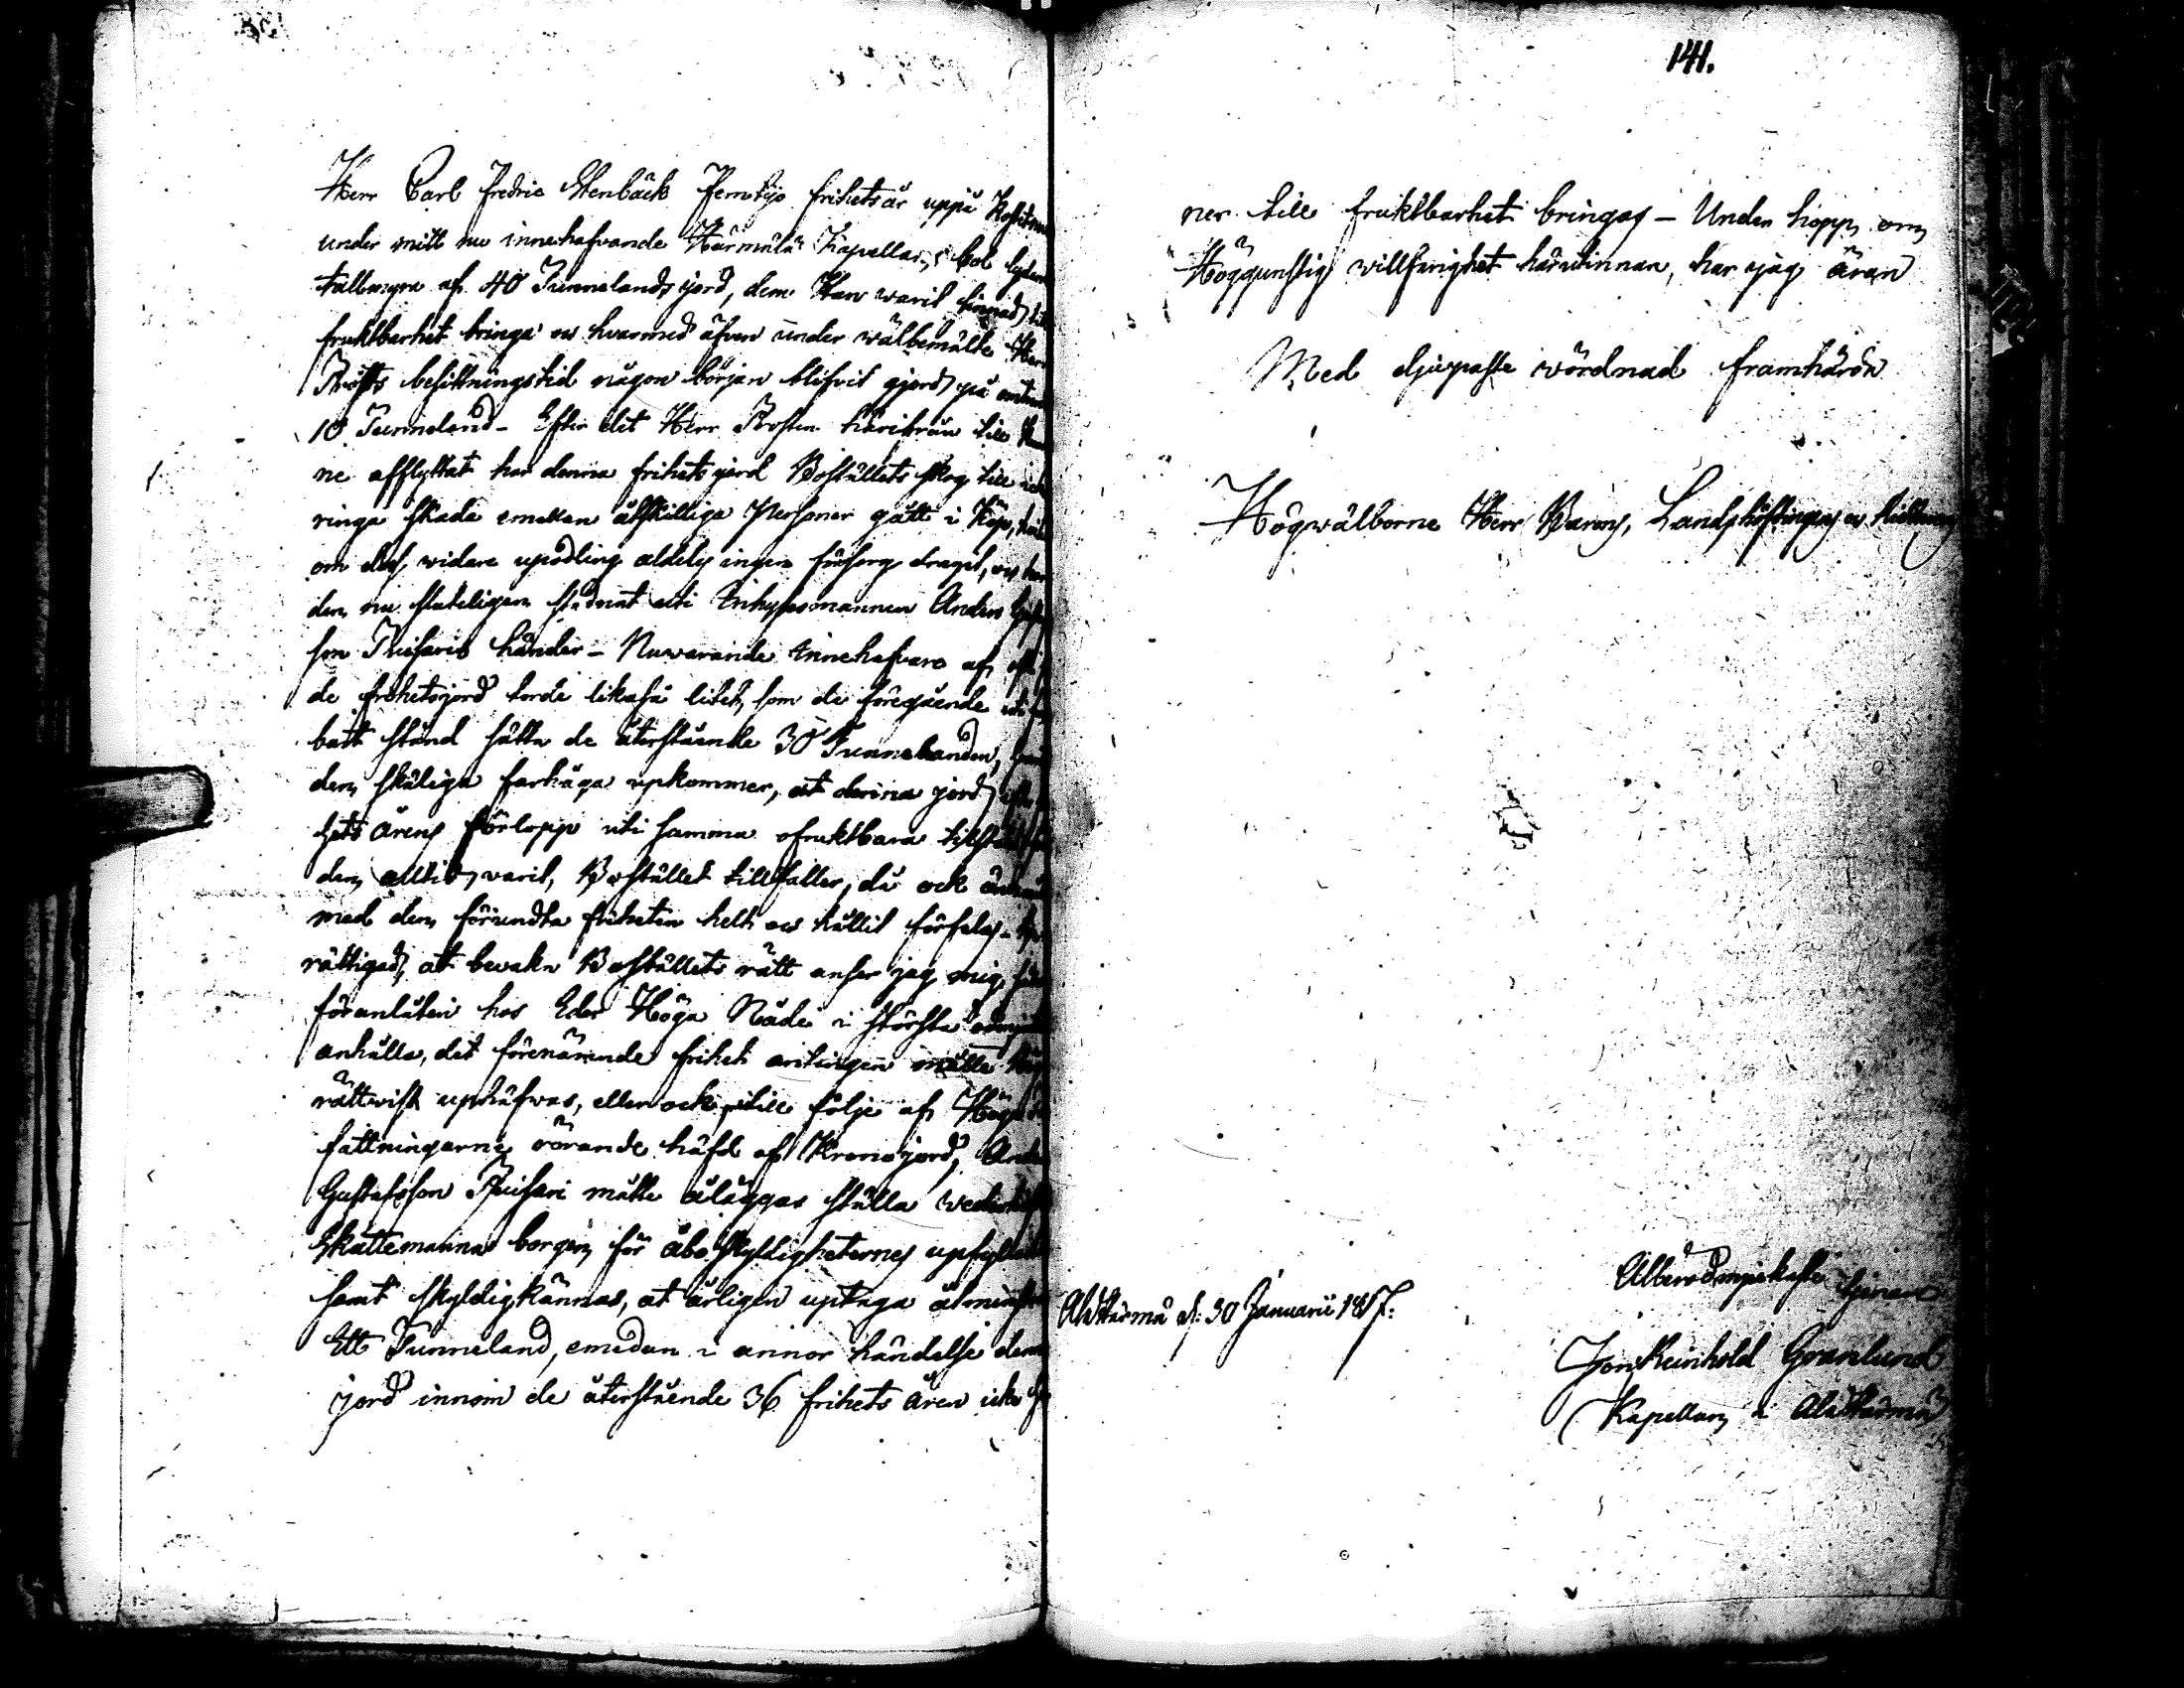 Herr Carl Fredric Stenbäck Femtijo frihetsår uppå
under mitt nu innehafvande Härmälä Kapellans Bol
tallmyra af 40 Tunnelands jord, dem Han warit sinnad till
fruktbarhet bringa och hvarmed äfven under wälbemälte Herr
Prosts besittningstid någon början blifvit gjord på
10 Tunneland - Efter det Herr Prosten härifrån till
ne afflyttat har denna frihetsjord Boställets skog till icke
ringa skada emellan åtskilliga Personer gått i Köp,
om dess widare upodling aldeles ingen försorg dragit, och har
den nu sluteligen stadnat uti Inhysesmannen Anders
son Ruisaris händer - Nuvarande Innehafvare af
de frihetsjord torde likaså litet, som de föregående uti
bätt stånd sätta de återstående 30 Tunnelanden,
den skäliga farhåga upkommer, at denna jord efter
hets årens förlopp uti samma ofruktbara tillstånd
den alltid varit, Bostället tillfaller, då ock
med den förundta friheten helt och hållit förfelas -
rättigad, at bevaka Boställets rätt anser jag mig
föranlåten hos Eder Höga Nåde i största
anhålla, det förenämnde frihet antingen måtte
rättvist uphäfwas, eller ock till följe af Höga
fattningarne rörande häfd af Kronojord, Anders
Gustafsson Ruisari måtte åläggas ställa
Skattemanna borgen för åboskyldigheternes
samt skyldigkännas, at årligen uptaga åtminstone
Ett Tunneland, emedan i annor händelse denna
jord innom de återstående 36 frihets åren icke
141.
ner till fruktbarhet bringas - Under hopp om
Höggunstig willfarighet härutinnan, har jag äran
Med djupaste wördnad framhärda
Högwälborne Herr Barons, Landshöfdingens och Riddarens
Allerödmjukaste tjenare
Ala Härmä d. 30 Januarii 1817.
Jon Reinhold Granlund
Kapellan i Ala Härmä